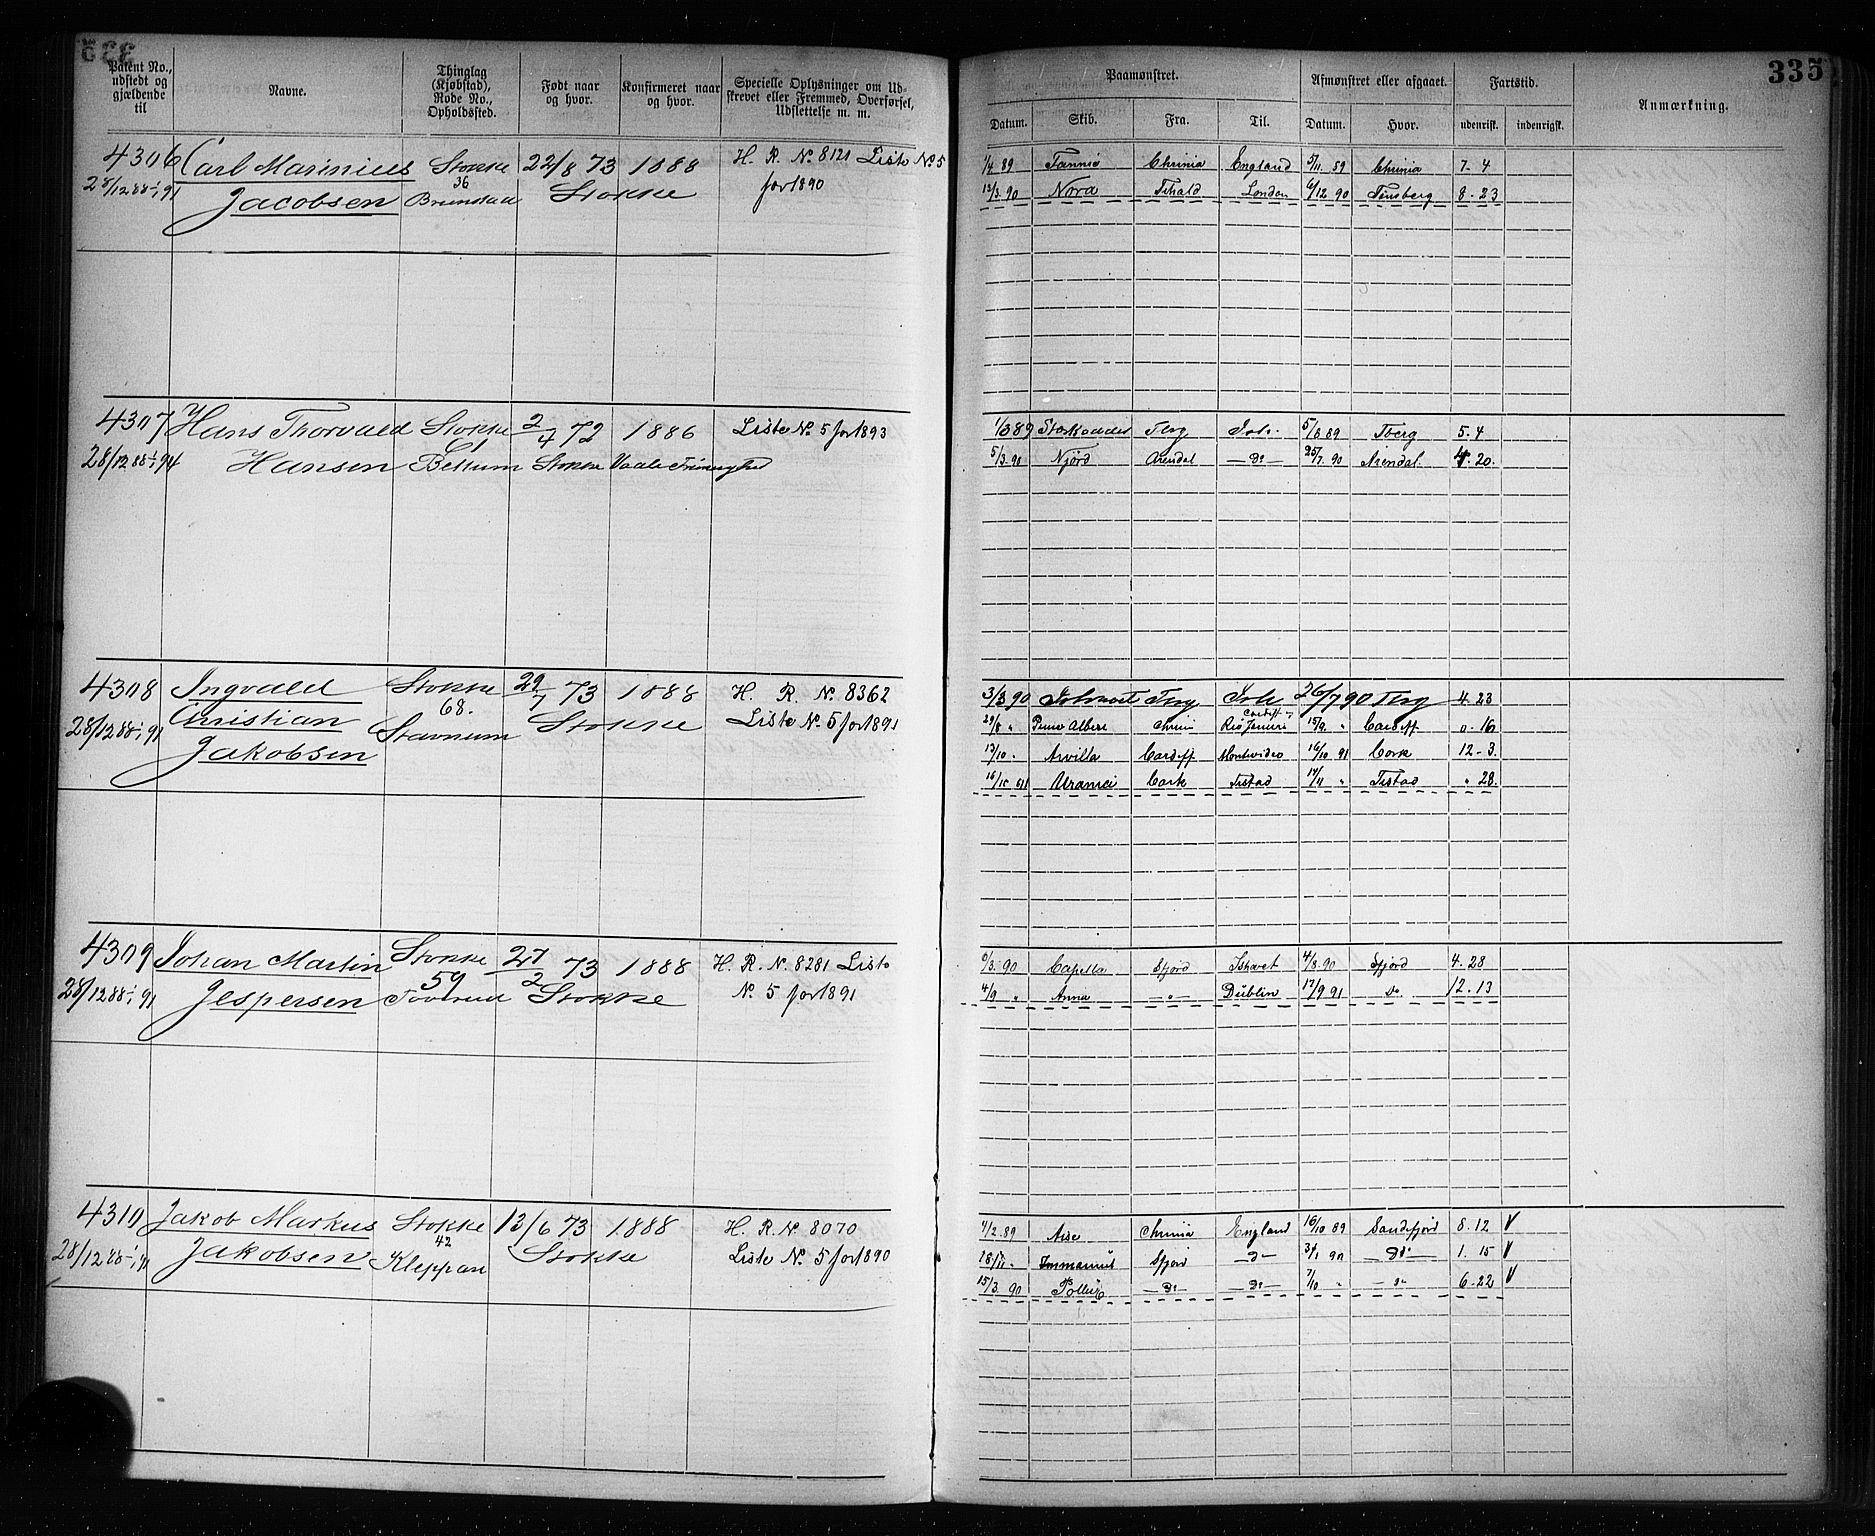 335
Patent No., udstedt og gjældende til
Navne.
Thinglag (Kjøbstad), Rode No., Opholdssted.
Født naar og hvor.
Konfirmeret naar og hvor.
Specielle Oplysninger om Udskrevet eller Fremmed, Overførsel, Udslettelse m. m.
Paamønstret.
Afmønstret eller afgaaet.
Fartstid.
Anmærkning.
Datum. Skib. Fra. Til. Datum. Hvor. udenriks. indenrigsk.
4306 Carl Marinius Stokke 22/8 73 1888 H. R. No 8121 Liste No 5
28/12 88-1/1 91 Jacobsen 36 Brunstad Stokke for 1890
1/4 89 Fannia Chrinia England 5/11. 89 Chrinia 7-4
13/3 90 Nora Fthald London 6/12 90 Tønsberg 8-23
4307 Hans Thorvald Stokke 2/4 72 1886 Liste No. 5 for 1893
28/12 88-1/1 94 Hansen 61 Bettum Stokke Vaale Frimenighed
1/3 89 Tbrg Ish. 5/8 89 Tberg 5-4
5/3. 90 Njörd Arendal - Do - 25/7. 90 Arendal. 4. 20.
4308 Ingvald Stokke 29/7 73 1888 H. R. No. 8362
28/12 88-1/1 91 Christian 68. Stokke Liste No. 5 for 1891
Jakobsen Stavnum
3/3 90 Tbrg Ish 26/7 90 Tbrg 4. 23
29/8 " Albert Chrini Cardiff - Rio Janeiro 15/9. " Cardiff 0-16
13/10 - Arvilla Cardiff Montevideo 16/10 91 Cork 12-3.
Urania Cork Fr.stad 14/11 " Fr.stad " 28.
4309 Johan Martin Stokke 27/2 73 1888 H. R. No. 8281 Liste
28/12 88-1/1 91 Jespersen 59 Stokke No. 5 for 1891
6/3. 90 Capella Sfjord Ishavet 4/8. 90 Sfjord 4. 28
4/9 " Anna - " - Dublin 17/9 91 Do 12. 13
4310 Jakob Markus Stokke 13/6 73 1888 H. R. No. 8070
28/12 88-1/1 91 Jakobsen 42 Kleppan Stokke Liste No. 5 for 1890
Chrinia England 16/10 89 Sandefjord 8. 12 V
18/11 - Immanuel Sfjord - Do - 31/1 90 - Do - 1. 15 V
15/3. 90 Pollux - Do - - Do - 7/10 " - Do - 6-22 V